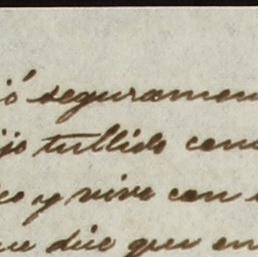 ió seguramen
ijo tullido con
eo y vive con
ue dice que en